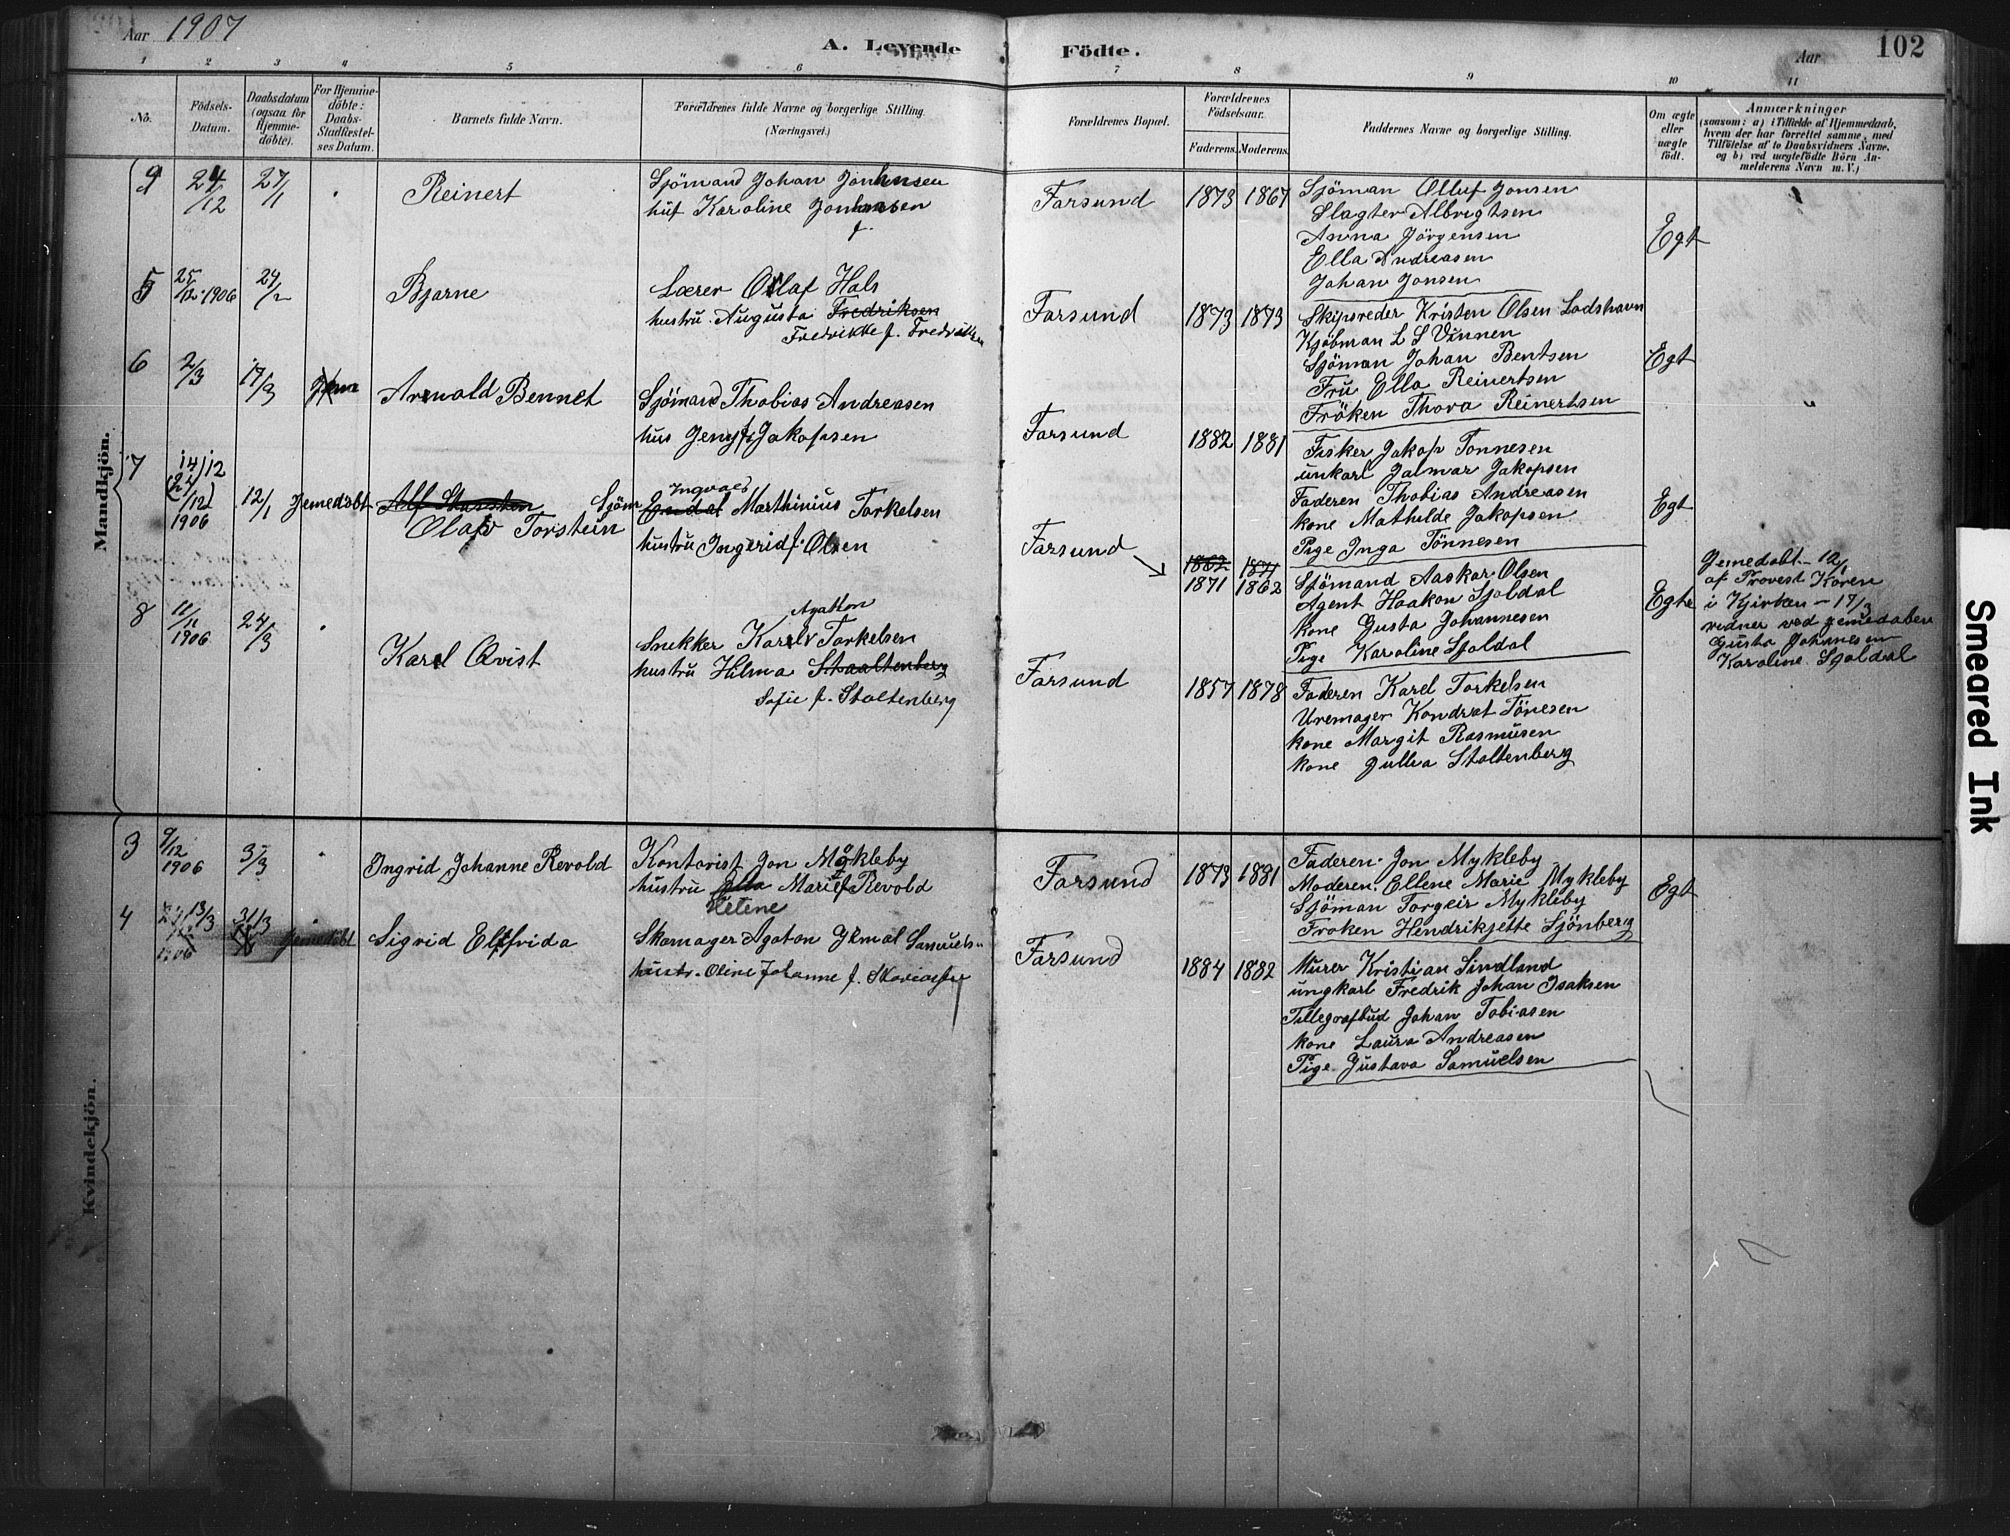 Aar 1907
A. Levende Födte.
Aar
102
1 2 3 4 5 6 7 8 9 10 11
No.
Födsels-Datum.
Daabsdatum (ogsaa for Hjemme-döbte).
For Hjemme-döbte: Daabs-Stadfæstel-ses Datum.
Barnets fulde Navn.
Forældrenes fulde Navne og borgerlige Stilling.
(Næringsvei.)
Forældrenes Bopæl.
Forældrenes Födselsaar.
Faderens. Moderens.
Faddernes Navne og borgerlige Stilling.
Om ægte eller uægte födt.
Anmærkninger
(saasom: a) i Tilfælde af Hjemmedaab,
hvem der har forrettet samme, med
Tilföielse af to Daabsvidners Navne,
og b) ved uægtefödte Börn An-
melderens Navn m. V.)
Mandkjön.
24/12 27/1 Reinert
Sjömand Johan
huf Karoline
f.
Farsund 1873 1867
Sjöman Olluf Jonsen
Slagter Albrigtsen
Anna Jörgensen
Ella Andreasen
Johan Jonsen
Egt
5 25/12 1906 24/2 Bjarne
Lærer Olaf Hals
hustru Augusta Fredriksen
Fredrikke f. Fredriksen
Farsund 1873 1873
Skipsreder Kristen Olsen Lodshavn
Kjöbman L S Vinnen
Sjöman Johan Bentsen
Fru Ella Reinertsen
Fröken Thora Reinertsen
Egt
6 2/3 17/3 Arnold Bennet
Sjömand Thobias Andreasen
hus Jeny f. Jakopsen
Farsund 1882 1881
Fisker Jakop Tonnesen
unkarl Jalmar Jakopsen
Faderen Thobias Andreasen
kone Mathilde Jakopsen
Pige Inga Tönnesen
Egt
7 14/12 (22/12) 1906 12/1 Jemedöbt
Olaf Torstein
Sjöm Ingvald Marthinius Torkelsen
hustru Ingerid f. Olsen
Farsund 1862 1871
1871 1862
Sjömand Aaskar Olsen
Agent Haakon Sjoldal
kone Gusta Johannesen
Pige Karoline Sjoldal
Egte
Jemedobt 12/1
af Provest Koren
i Kjirken - 17/3
vidner ved jemedaben
Gusta Johanesen
Karoline Sjoldal
8 11/11 1906 24/3 Karl Qvist
Agatton
Snekker Karel Torkelsen
hustru Hilma Staaltenberg
Sofie f. Stoltenberg
Farsund 1857 1878
Faderen Karel Torkelsen
Uremager Kondrat Tönesen
kone Margit Rasmusen
kone Jullia Stoltenberg
Kvindekjön.
3 9/12 1906 3/3 Ingrid Johanne Revold
Kontorist Jon Mykleby
hustru Marie f Revold
Helene
Farsund 1873 1881
Faderen Jon Mykleby
Moderen Ellene Marie Mykleby
Sjöman Torgeir Mykleby
Froken Hendrikjette Sjönberg
Egt
4 13/3 1906 31/3 Jemedobt Sigrid Elfrida
Skomager Agaton Jemal Samuels
hustr. Oline Johanne f.
Farsund 1884 1882
Murer Kristian Sindland
ungkarl Fredrik Johan Isaksen
Tellegrafbud Johan Tobiasen
kone Laura Andreasen
Pige Gustava Samuelsen
Smeared Ink